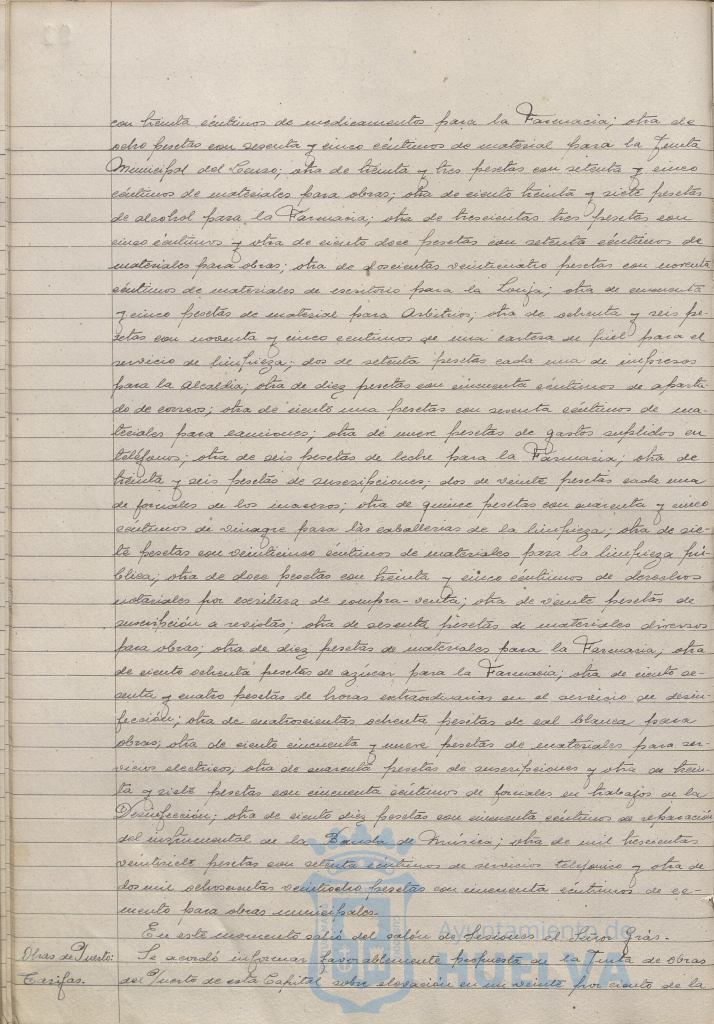 con treinta céntimos de medicamentos para la Farmacia; otra de
ocho pesetas con sesenta y cinco céntimos de material para la Junta
Municipal del Censo; otra de treinta y tres pesetas con setenta y cinco
céntimos de materiales para obras; otra de ciento treinta y siete pesetas
de alcohol para la Farmacia; otra de trescientas tres pesetas con
cinco céntimos y otra de ciento doce pesetas con setenta céntimos de
materiales para obras; otra de doscientas veinticuatro pesetas con noventa
céntimos de materiales de escritorio para la Lonja; otra de cincuenta
y cinco pesetas de material para Arbitrios; otra de ochenta y seis pe-
setas con noventa y cinco céntimos de una cartera de piel para el
servicio de limpieza; dos de setenta pesetas cada una de impresos
para la Alcaldia; otra de diez pesetas con cincuenta céntimos de aparta-
do de correos; otra de ciento una pesetas con sesenta céntimos de ma-
teriales para camiones; otra de nueve pesetas de gastos suplidos en
teléfonos; otra de seis pesetas de leche para la Farmacia; otra de
treinta y seis pesetas de suscripciones; dos de veinte pesetas cada una
de jornales de los; otra de quince pesetas con cuarenta y cinco
céntimos de vinagre para las caballerias de la limpieza; otra de sie-
te pesetas con veinticinco céntimos de materiales para la limpieza pú-
blica; otra de doce pesetas con treinta y cinco céntimos de derechos
notariales por escritura de compra-venta; otra de veinte pesetas de
suscripción a revistas; otra de sesenta pesetas de materiales diversos
para obras; otra de diez pesetas de materiales para la Farmacia; otra
de ciento ochenta pesetas de azúcar para la Farmacia; otra de ciento se-
senta y cuatro pesetas de horas extraordinarias en el servicio de desin-
fección; otra de cuatrocientas ochenta pesetas de cal blanca para
obras; otra de ciento cincuenta y nueve pesetas de materiales para ser-
vicios electricos; otra de cuarenta pesetas de suscripciones y otra de trein-
ta y siete pesetas con cincuenta céntimos de jornales en trabajos en la
Desinfección; otra de ciento diez pesetas con cincuenta céntimos de reparación
del instrumental de la Banda de Música; otra de mil trescientas
veintisiete pesetas con setenta céntimos de servicios telefonico y otra de
dos mil ochocientas veintiocho pesetas con cincuenta céntimos de ce-
mento para obras municipales.
En este momento salió del salón de sesiones el Señor Grás.
Obras de Puerto: Se acordó informar favorablemente propuesta de la Junta de Obras
Tarifas. del Puerto de esta Capital sobre elevación en un veinte por ciento de la
Ayuntamiento de
HUELVA